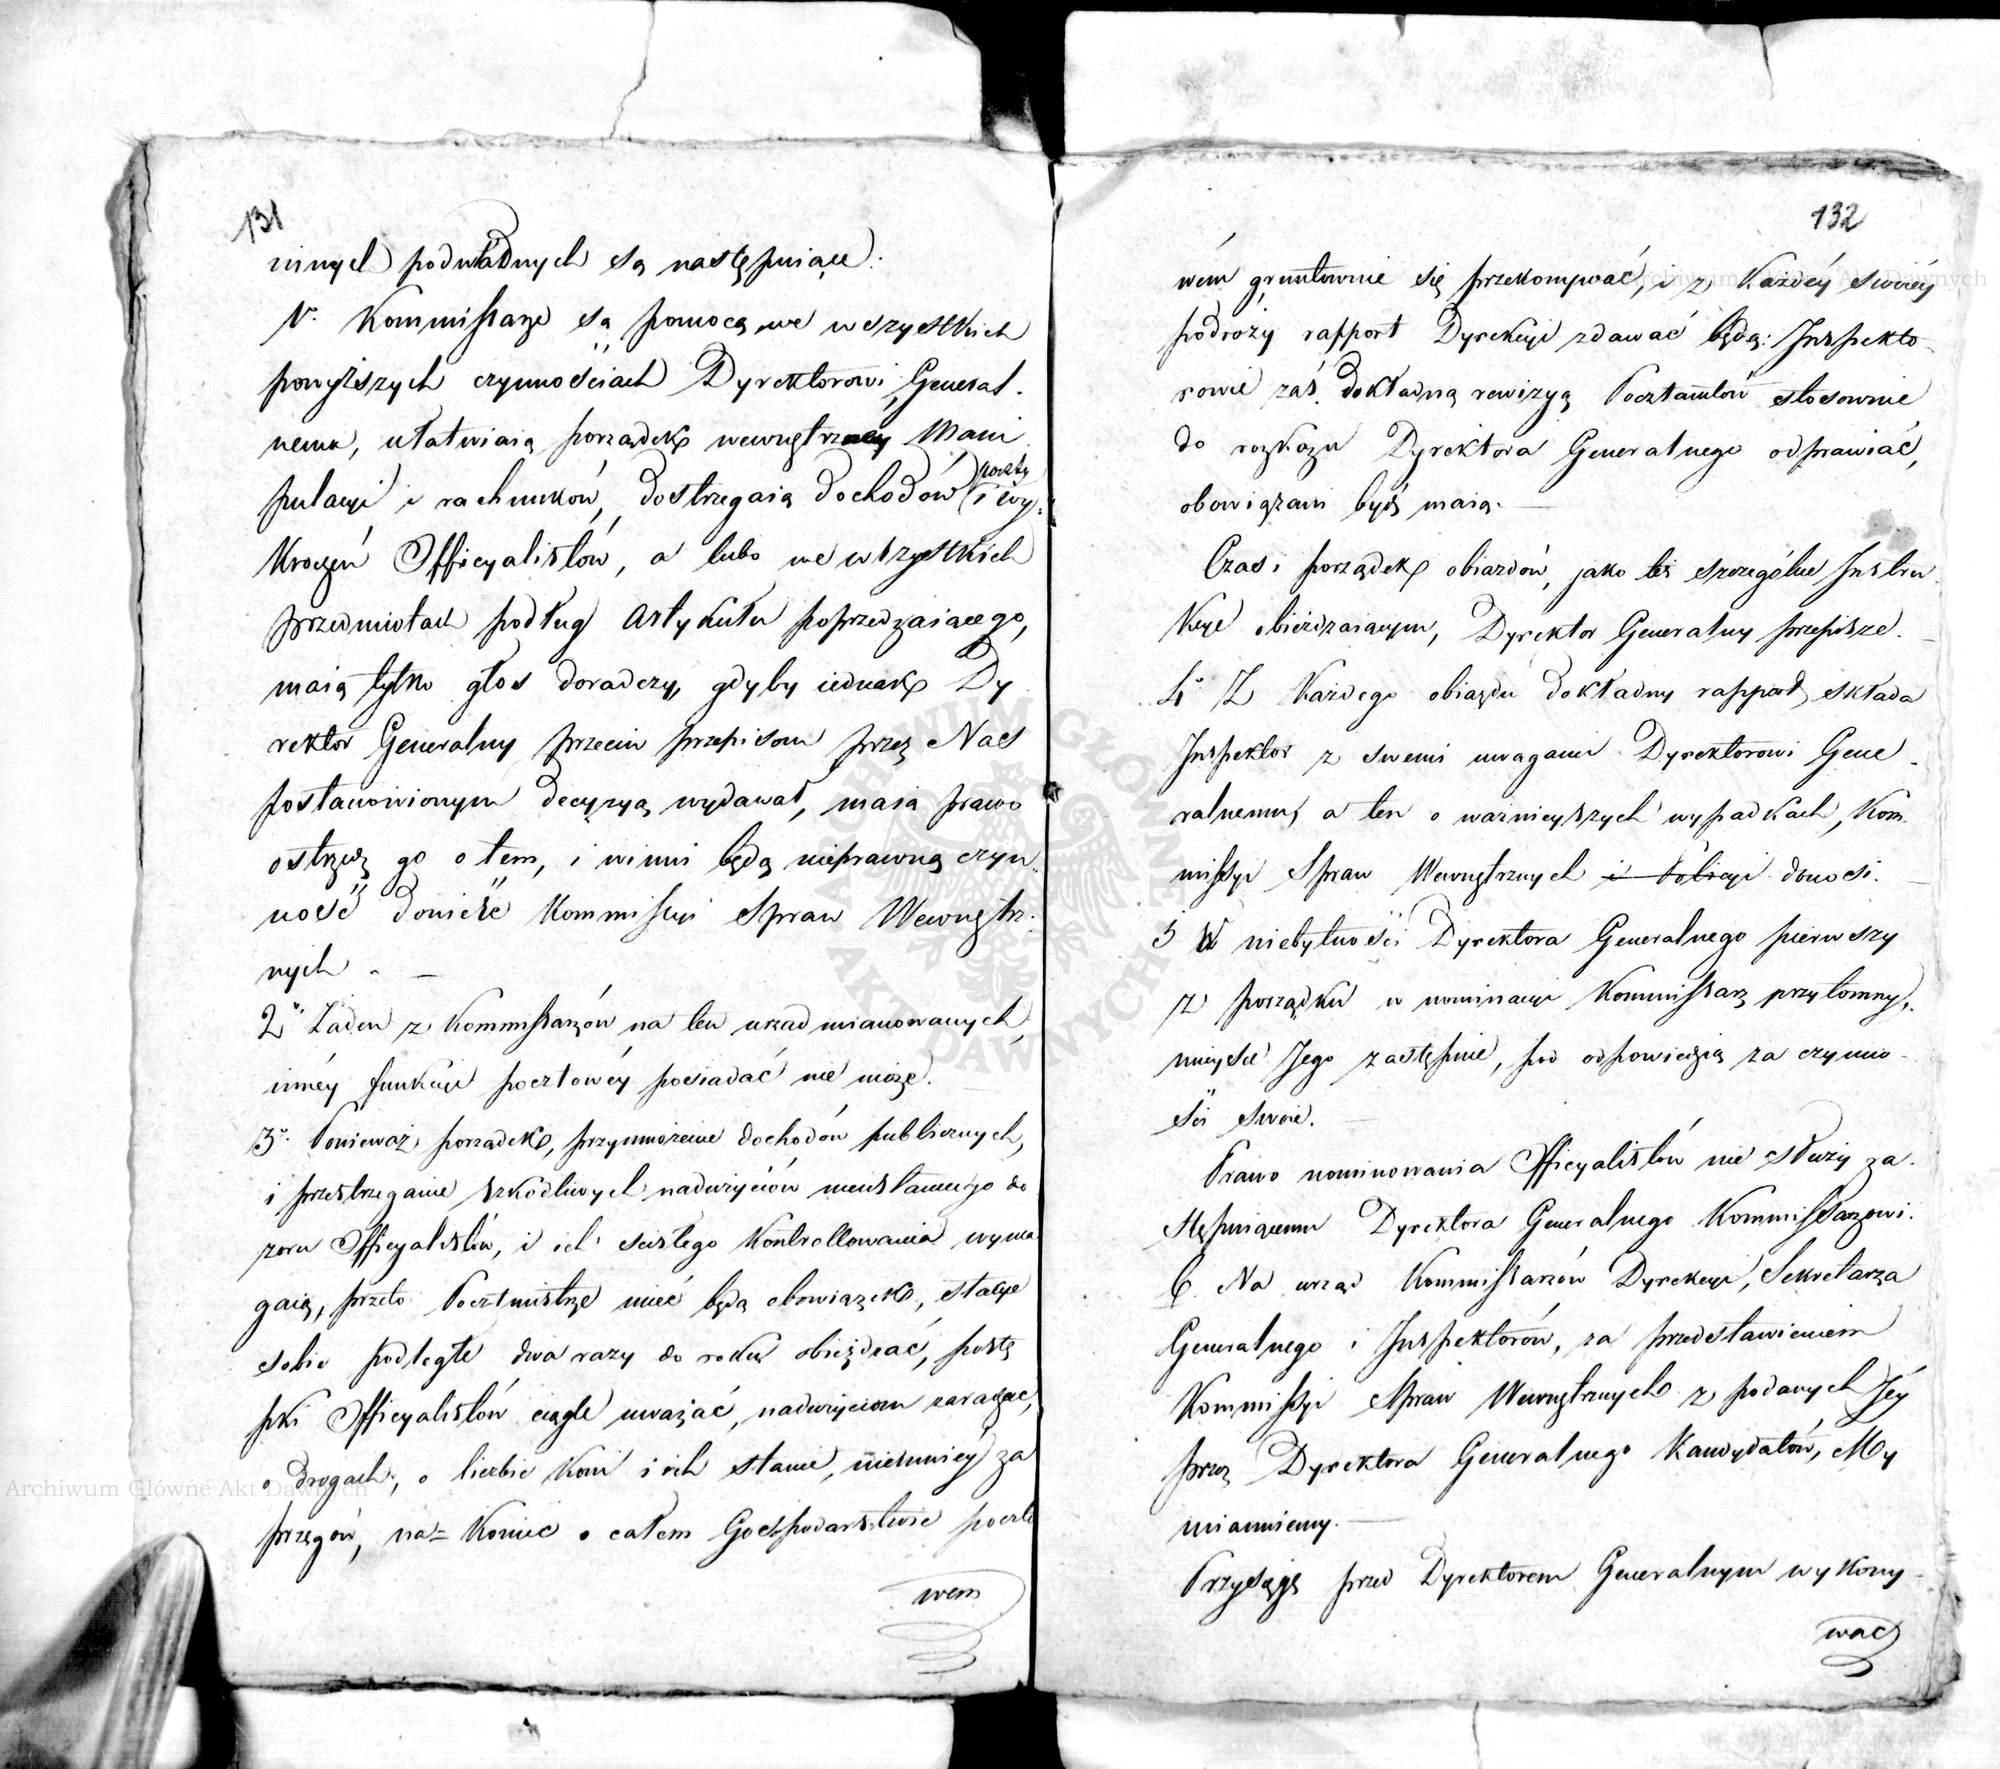 131
innych podwładnych są następuiące:
1o. Kommissarze są pomocą we wszystkich
powyższych czynnościach Dyrektorowi General-
nemu, ułatwiaią porządek wewnętrzney Mani
pulacyi i rachunków, dostrzegaią dochodów poczty i wy-
kroczeń Officyalistów, a lubo we wszystkich
przedmiotach podług Artykułu poprzedzaiącego,
maią tylko głos doradczy, gdyby iednak Dy
rektor Generalny przeciw przepisom przez Nas
postanowionym decyzyą wydawał, maią prawo
ostrzedz go o tem, i winni będą nieprawną czyn-
ność donieść Kommissyi Spraw Wewnętrz-
nych. —
2o Żaden z Kommissarzów na ten urząd mianowanych,
innéy funkcyi pocztowéy posiadać nie może.
3o. Ponieważ porządek, przymnożenie dochodów publicznych,
i przestrzeganie szkodliwych nadużyciów nieustannego do
zoru Officyalistów, i ich scisłego kontrollowania wyma
gaią, przeto Pocztmistrze mieć będą obowiązek, stacye
sobie podległe dwa razy do roku obieżdżać, postę
pki Officyalistów ciągle uważać, nadużyciom zaradzać,
o drogach, o liczbie koni i ich stanie, niemniey za
przęgów, na= koniec o całem Gospodarstwie poczto
wem
132
wém gruntownie się przekonywać, i z każdéy swoiéy
podroży rapport Dyrekcyi zdawać będą: Inspekto-
rowie zaś dokładną rewizyą Pocztamtów stosownie
do rozkazu Dyrektora Generalnego odprawiać,
obowiązani bydź maią. —
Czas i porządek obiazdów, jako też szczególne Instru
kcye obieżdzaiącym, Dyrektor Generalny przepisze. —
4o Z każdego obiazdu dokładny rapport, składa
Inspektor z swemi uwagami Dyrektorowi Gene-
ralnemu, a ten o ważnieyszych wypadkach, Kom
missyi Spraw Wewnętrznych i Policyi donosi. —
5 W niebytności Dyrektora Generalnego pierwszy
z porządku w nominacyi Kommissarz przytomny,
mieysce Jego zastępuie, pod odpowiedzią za czynno-
ści swoie. —
Prawo nominowania Officyalistów nie służy za-
stępuiącemu Dyrektora Generalnego Kommissarzowi.
6. Na urząd Kommissarzów Dyrekcyi, Sekretarza
Generalnego i Inspektorów, za przedstawieniem
Kommissyi Spraw Wewnętrznych z podanych Jéy
przez Dyrektora Generalnego Kandydatów, My
mianuiemy. —
Przysięgę przed Dyrektorem Generalnym wykony-
wać
Archiwum Główne Akt Dawnych